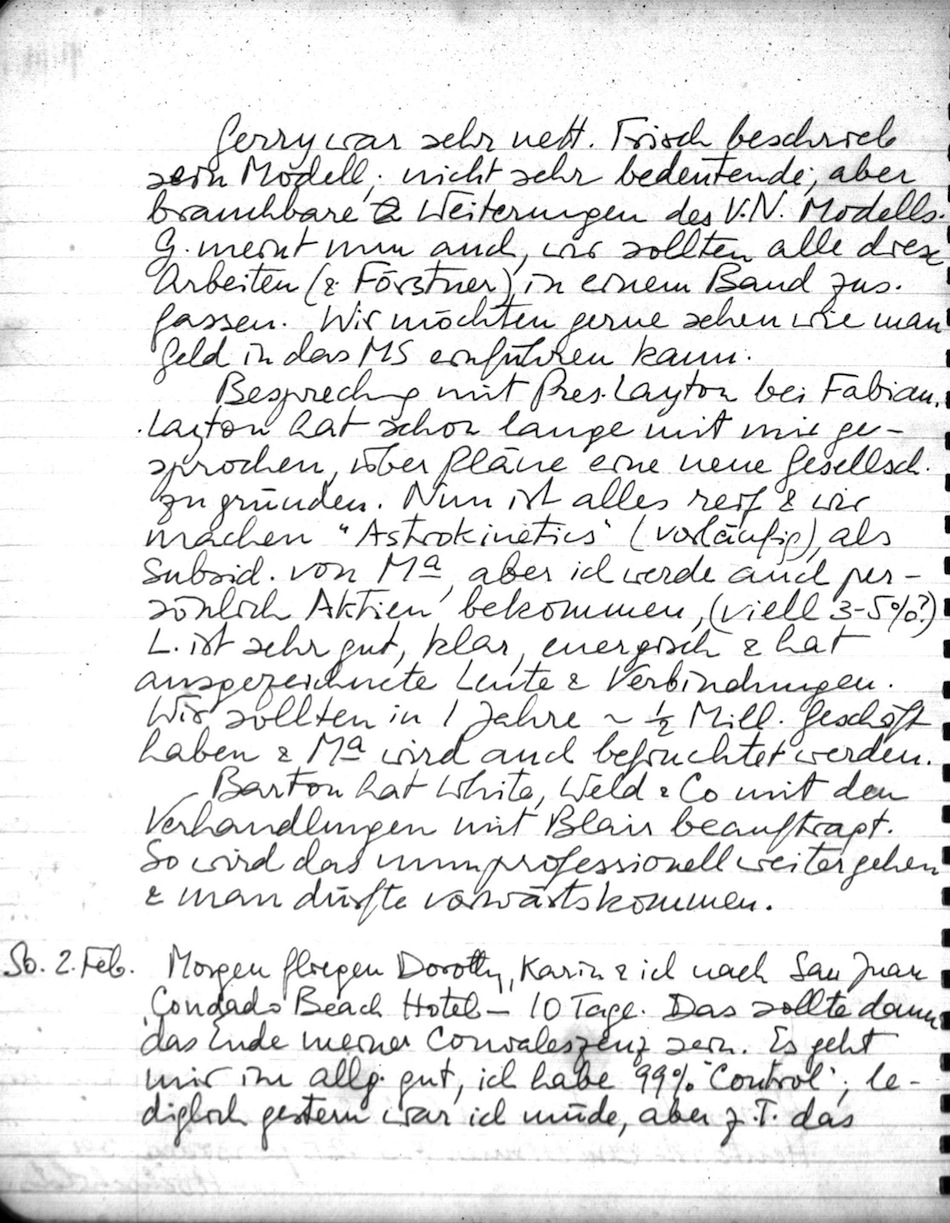 Gerry war sehr nett. Frisch beschrieb
sein Modell; nicht sehr bedeutende, aber
brauchbare Weiterungen des V.N. Modells.
G. meint nun auch, wir sollten alle diese
Arbeiten (& Förstner) in einem Band zus.
fassen. Wir möchten gerne sehen wie man
Geld in das MS einführen kann.
Besprechg mit Pres. Layton bei Fabian.
Layton hat schon lange mit mir ge-
sprochen, über Pläne eine neue Gesellsch.
zu gründen. Nun ist alles reif & wir
machen "Astrokinetics" (vorläufig), als
Subsid. von Mª, aber ich werde auch per-
sönlich Aktien bekommen, (viell 3-5%?)
L. ist sehr gut, klar, energisch & hat
ausgezeichnete Leute & Verbindungen.
Wir sollten in 1 Jahre ~ ½ Mill. Geschäft
haben & Mª wird auch befruchtet werden.
Barton hat White, Weld & Co mit den
Verhandlungen mit Blair beauftragt.
So wird das nun professionell weitergehen
& man dürfte vorwärtskommen.
So. 2. Feb. Morgen fliegen Dorothy, Karin & ich nach San Juan
Condado Beach Hotel – 10 Tage. Das sollte dann
das Ende meiner Convaleszenz sein. Es geht
mir im allg. gut, ich habe 99% "Control"; le-
diglich gestern war ich müde, aber z.T. das